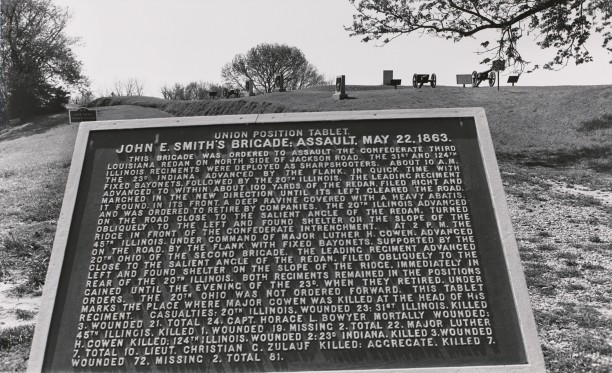 UNION POSITION TABLET.
JOHN E. SMITH'S BRIGADE: ASSAULT, MAY 22, 1863.
THIS BRIGADE WAS ORDERED TO ASSAULT THE CONFEDERATE THIRD
LOUISIANA REDAN ON NORTH SIDE OF JACKSON ROAD. THE 31ST AND 124TH
ILLINOIS REGIMENTS WERE DEPLOYED AS SHARPSHOOTERS. ABOUT 10 A.M.
THE 23D. INDIANA ADVANCED BY THE FLANK, IN QUICK TIME WITH
FIXED BAYONETS, FOLLOWED BY THE 20TH ILLINOIS; THE LEADING REGIMENT
ADVANCED TO WITHIN ABOUT 100 YARDS OF THE REDAN, FILED RIGHT AND
MARCHED IN THAT DIRECTION UNTIL ITS LEFT CLEARED THE ROAD.
IT FOUND, IN ITS FRONT, A DEEP RAVINE COVERED WITH A HEAVY ABATIS,
AND WAS ORDERED TO RETIRE BY COMPANIES. THE 20TH ILLINOIS ADVANCED
ON THE ROAD CLOSE TO THE SALIENT ANGLE OF THE REDAN, TURNED
OBLIQUELY TO THE LEFT AND FOUND SHELTER ON THE SLOPE OF THE
RIDGE IN FRONT OF THE CONFEDERATE INTRENCHMENT. AT 2 P. M. THE
45TH ILLINOIS, UNDER COMMAND OF MAJOR LUTHER H. COWEN, ADVANCED
ON THE ROAD, BY THE FLANK WITH FIXED BAYONETS, SUPPORTED BY THE
20TH OHIO OF THE SECOND BRIGADE. THE LEADING REGIMENT ADVANCED
CLOSE TO THE SALIENT ANGLE OF THE REDAN, FILED OBLIQUELY TO THE
LEFT AND FOUND SHELTER ON THE SLOPE OF THE RIDGE, IMMEDIATELY IN
REAR OF THE 20TH ILLINOIS. BOTH REGIMENTS REMAINED IN THE POSITIONS
GAINED UNTIL THE EVENING OF THE 23D. WHEN THEY RETIRED, UNDER
ORDERS. THE 20TH OHIO WAS NOT ORDERED FORWARD. THIS TABLET
MARKS THE PLACE WHERE MAJOR COWEN WAS KILLED AT THE HEAD OF HIS
REGIMENT. CASUALTIES: 20TH ILLINOIS, WOUNDED 23; 31ST ILLINOIS, KILLED
3, WOUNDED 21, TOTAL 24, CAPT. HORACE L. BOWYER MORTALLY WOUNDED:
45TH ILLINOIS, KILLED 1, WOUNDED 19, MISSING 2, TOTAL 22, MAJOR LUTHER
H. COWEN KILLED; 124TH ILLINOIS, WOUNDED 2; 23D INDIANA, KILLED 3, WOUNDED
7, TOTAL 10, LIEUT. CHRISTIAN G. ZULAUF KILLED: AGGREGATE, KILLED 7,
WOUNDED 72, MISSING 2, TOTAL 81.